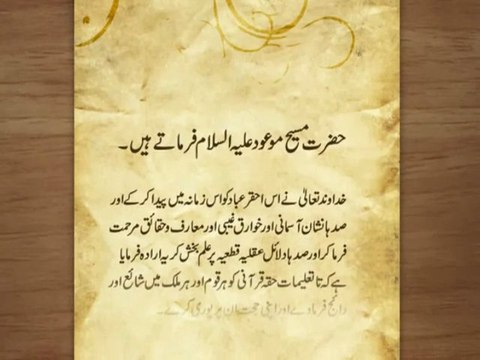 حضرت مسیح موعود علیہ السلام فرماتے ہیں ۔
خداوند تعالیٰ نے اس احقر عباد کو اس زمانہ میں پیدا کر کے اور
صدہا نشان آسمانی اور خوارق غیبی اور معارف و حقائق مرحمت
فرما کر اور صدہا دلائل عقلیہ قطعیہ پر علم بخش کر یہ ارادہ فرمایا
ہے کہ تا تعلیمات حقہ قرآنی کو ہر قوم اور ہر ملک میں شائع اور
رائج فرما دے اور اپنی حجت ان پر پوری کرے ۔